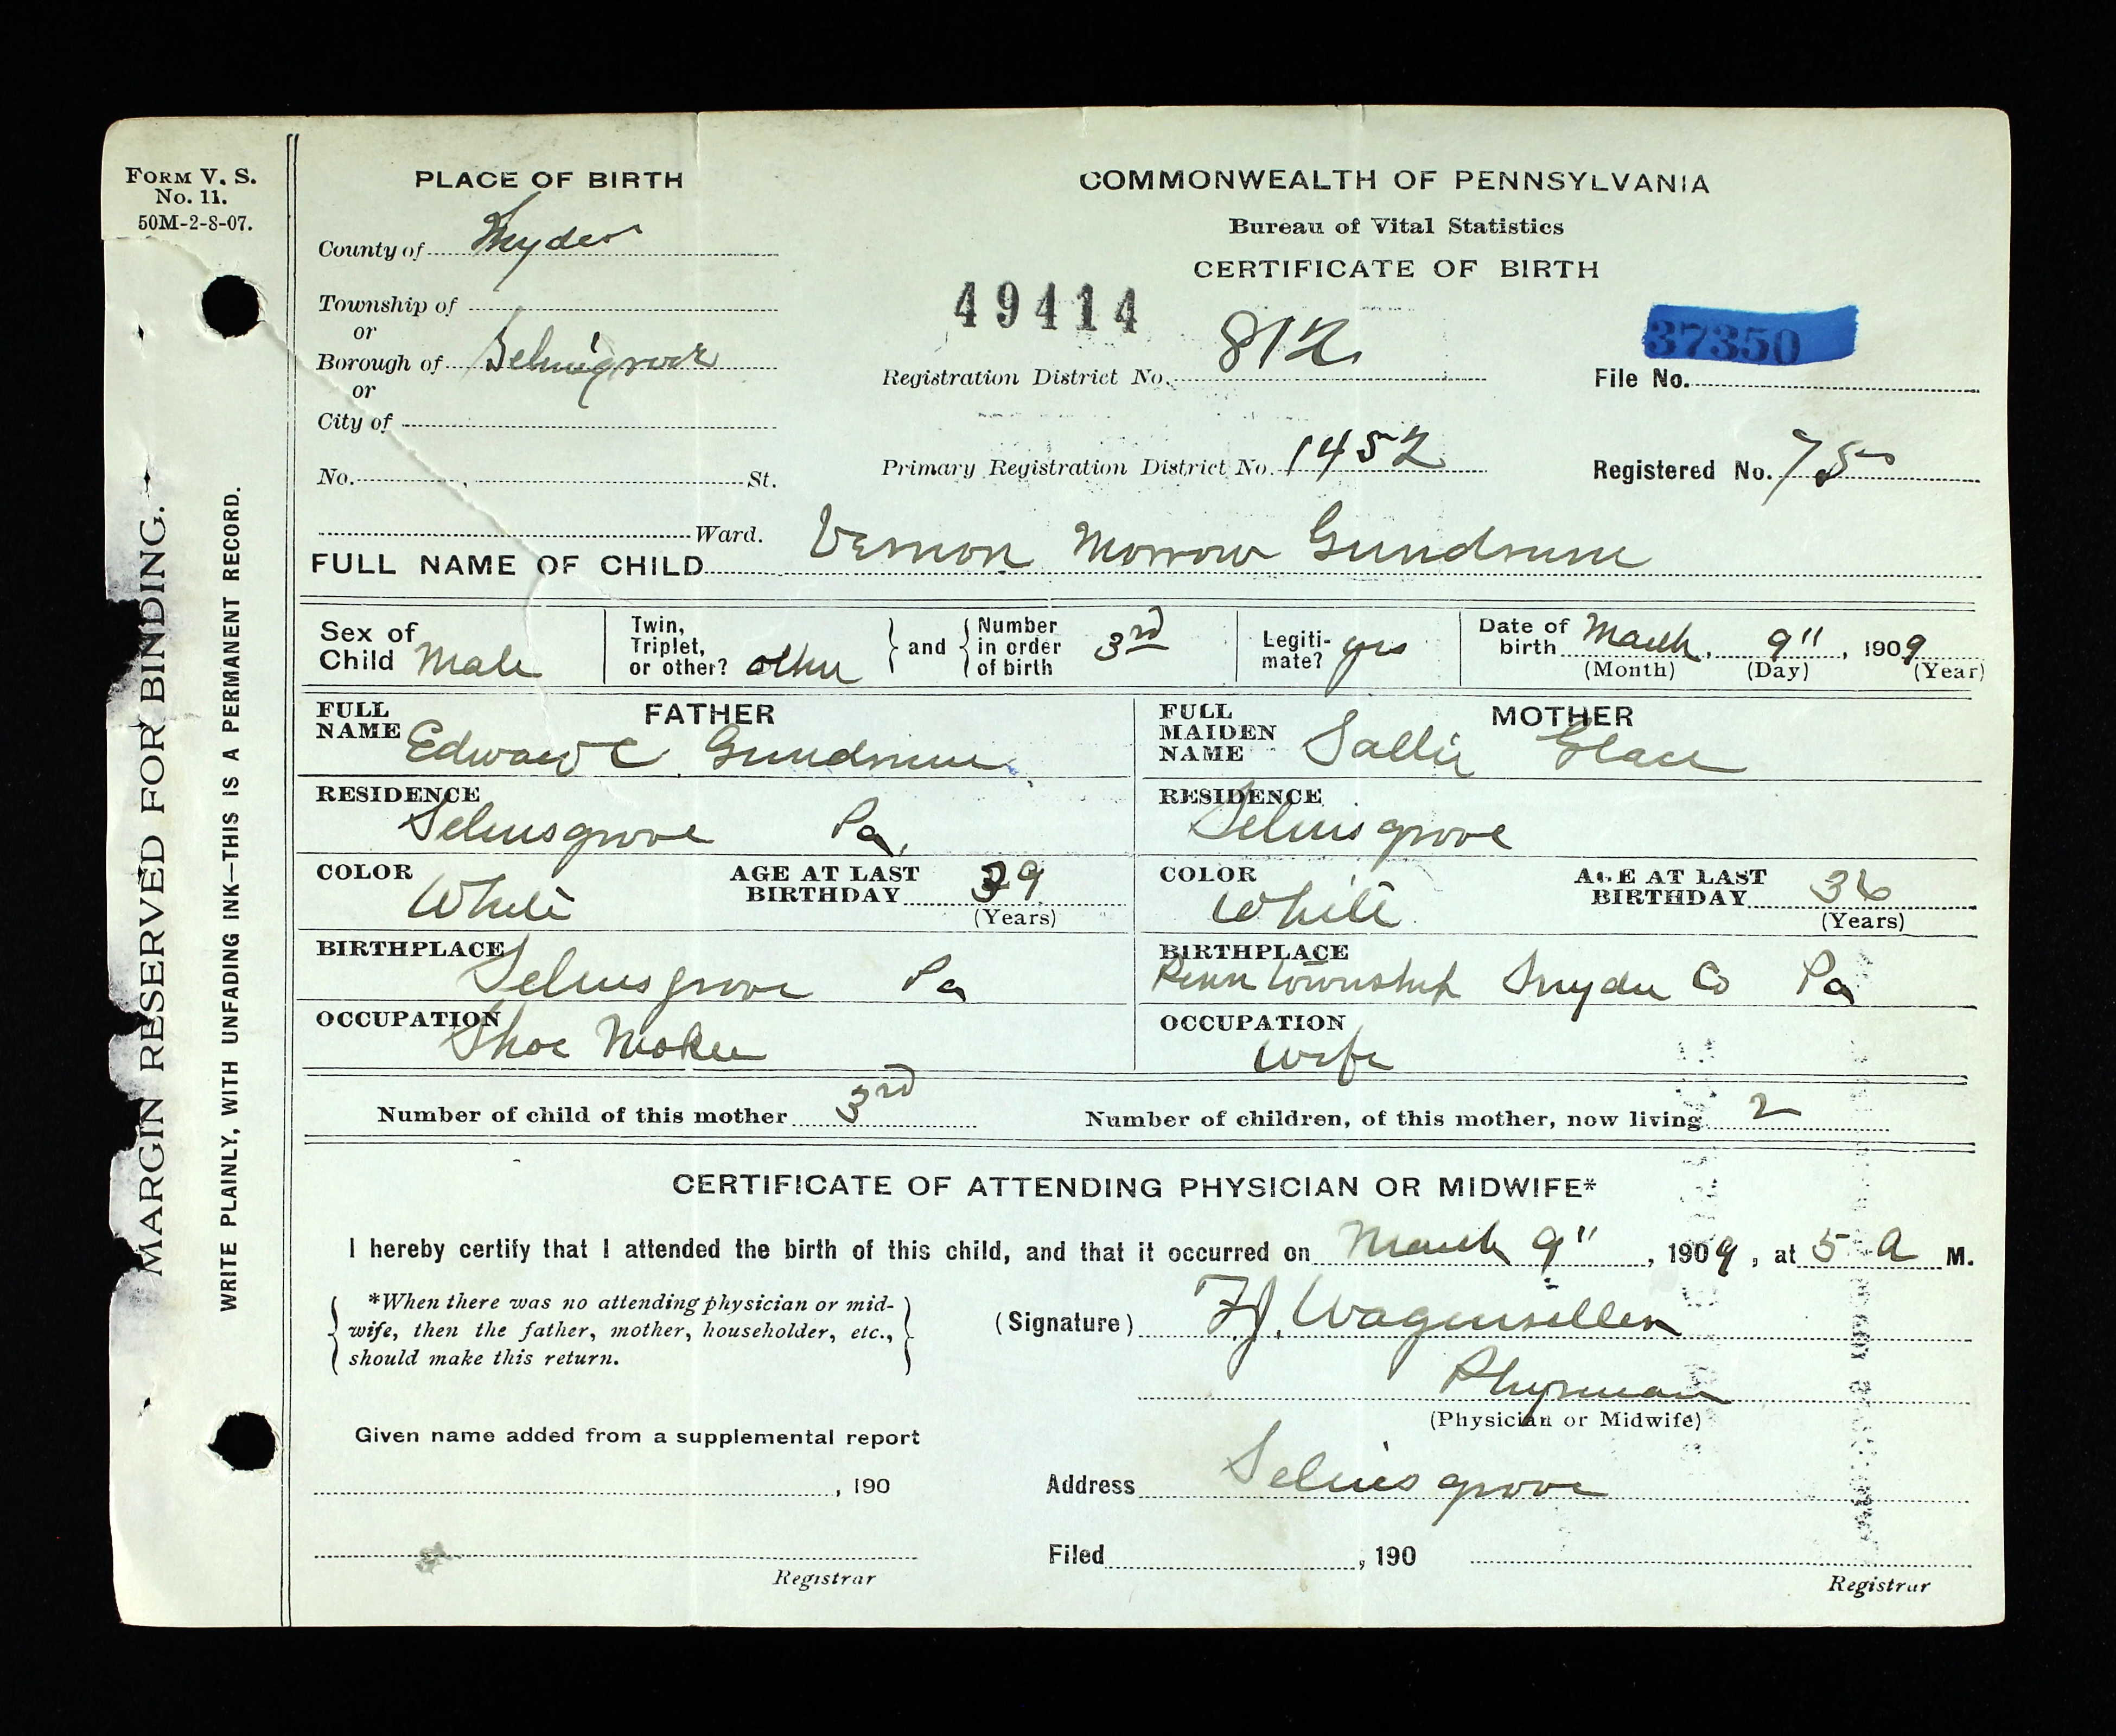 FORM V. S.
No. 11.
50M-2-8-07.
MARGIN RESERVED FOR BINDING.
WRITE PLAINLY, WITH UNFADING INK—THIS IS A PERMANENT RECORD.
PLACE OF BIRTH
County of Snyder
Township of
or
Borough of Selinsgrove
or
City of
No. , St.
Ward.
COMMONWEALTH OF PENNSYLVANIA
Bureau of Vital Statistics
CERTIFICATE OF BIRTH
49414
Registration District No. 812
37350
File No.
Primary Registration District No. 1452
Registered No. 75
FULL NAME OF CHILD Vernon Morrow Gundrum
Sex of Child Male
Twin, Triplet, or other? other
and
Number in order of birth 3rd
Legiti-mate? yes
Date of birth March 9", 1909
(Month) (Day) (Year)
FATHER
FULL NAME Edward C Gundrum
RESIDENCE
Selinsgrove Pa.
COLOR White
AGE AT LAST BIRTHDAY 39
(Years)
BIRTHPLACE
Selinsgrove Pa
OCCUPATION
Shoe Maker
MOTHER
FULL MAIDEN NAME Sallie Glace
RESIDENCE
Selinsgrove
COLOR White
AGE AT LAST BIRTHDAY 36
(Years)
BIRTHPLACE
Penn Township Snyder Co Pa
OCCUPATION
Wife
Number of child of this mother 3rd
Number of children, of this mother, now living 2
CERTIFICATE OF ATTENDING PHYSICIAN OR MIDWIFE*
I hereby certify that I attended the birth of this child, and that it occurred on March 9", 1909, at 5 A M.
*When there was no attending physician or mid-
wife, then the father, mother, householder, etc.,
should make this return.
(Signature) F J. Wagenseller
Physician
(Physician or Midwife)
Given name added from a supplemental report
, 190
Registrar
Address Selinsgrove
Filed , 190
Registrar